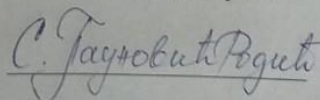 С. Гауновић Родић